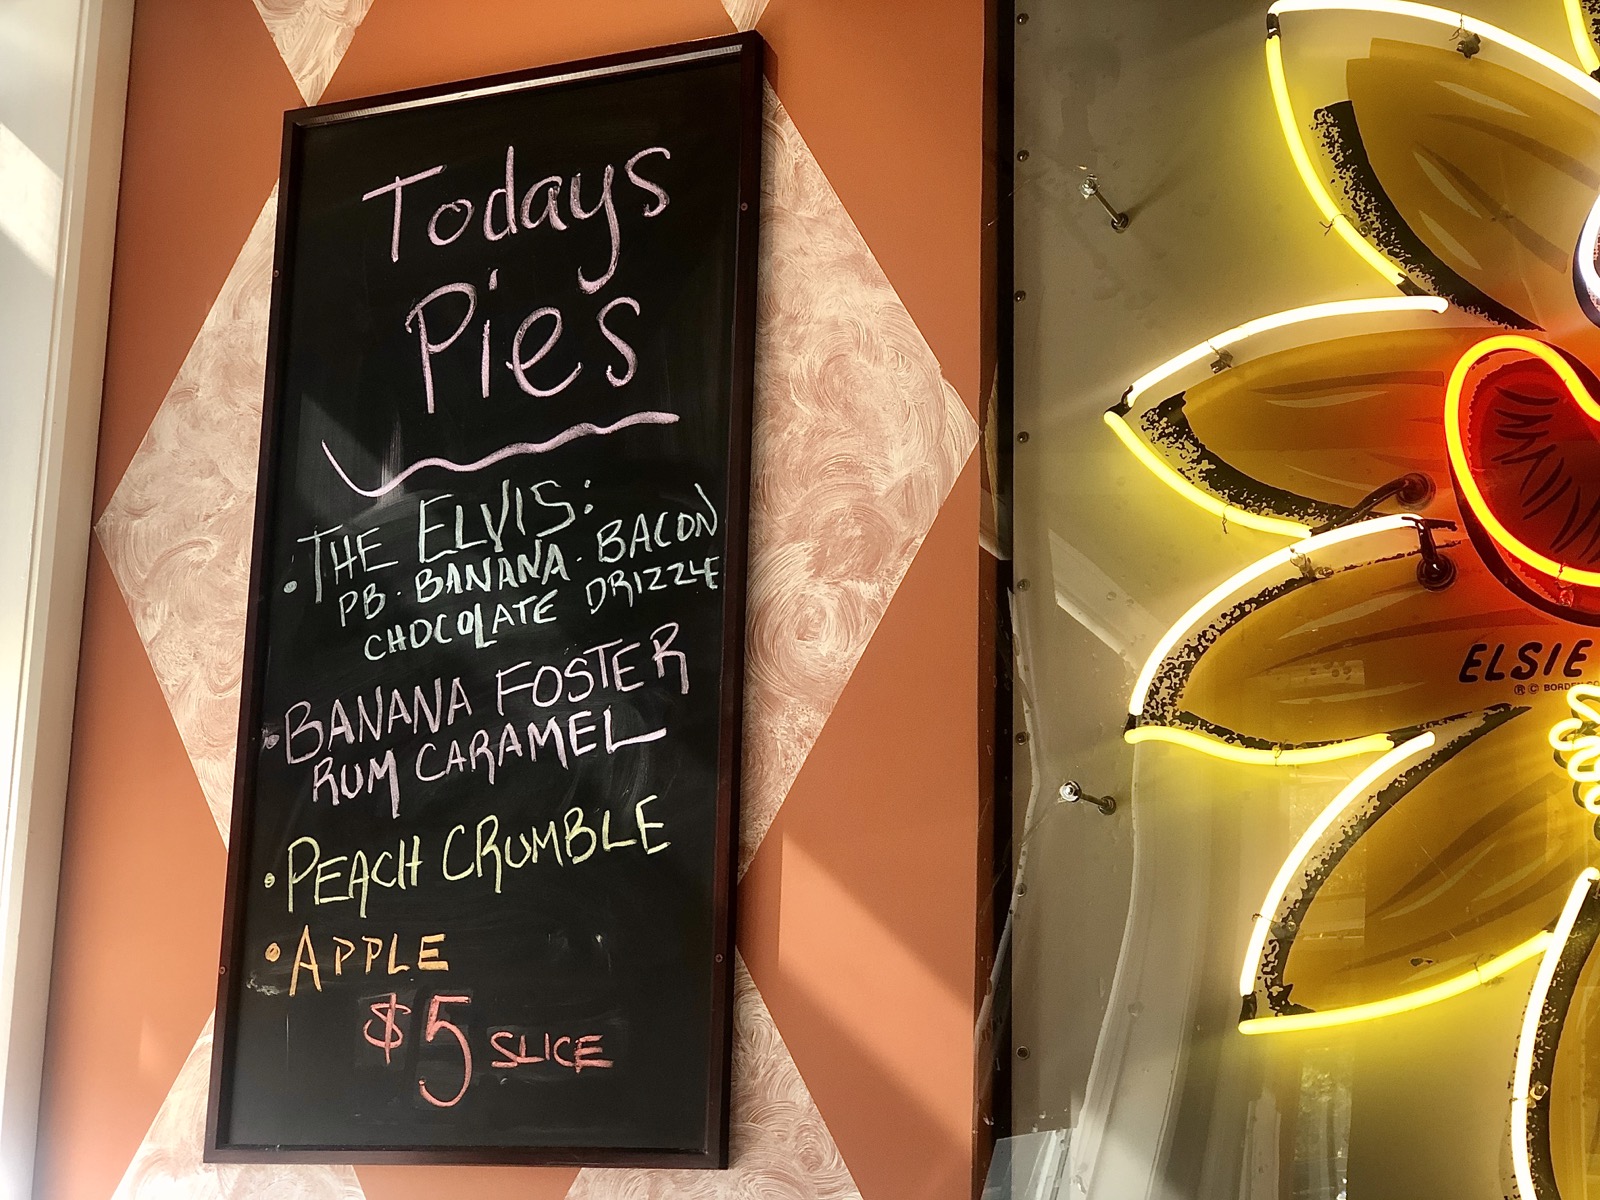 Todays
Pies
• THE ELVIS:
PB · BANANA · BACON
CHOCOLATE DRIZZLE
• BANANA FOSTER
RUM CARAMEL
• PEACH CRUMBLE
• APPLE
$5 SLICE
ELSIE
® © BORDEN